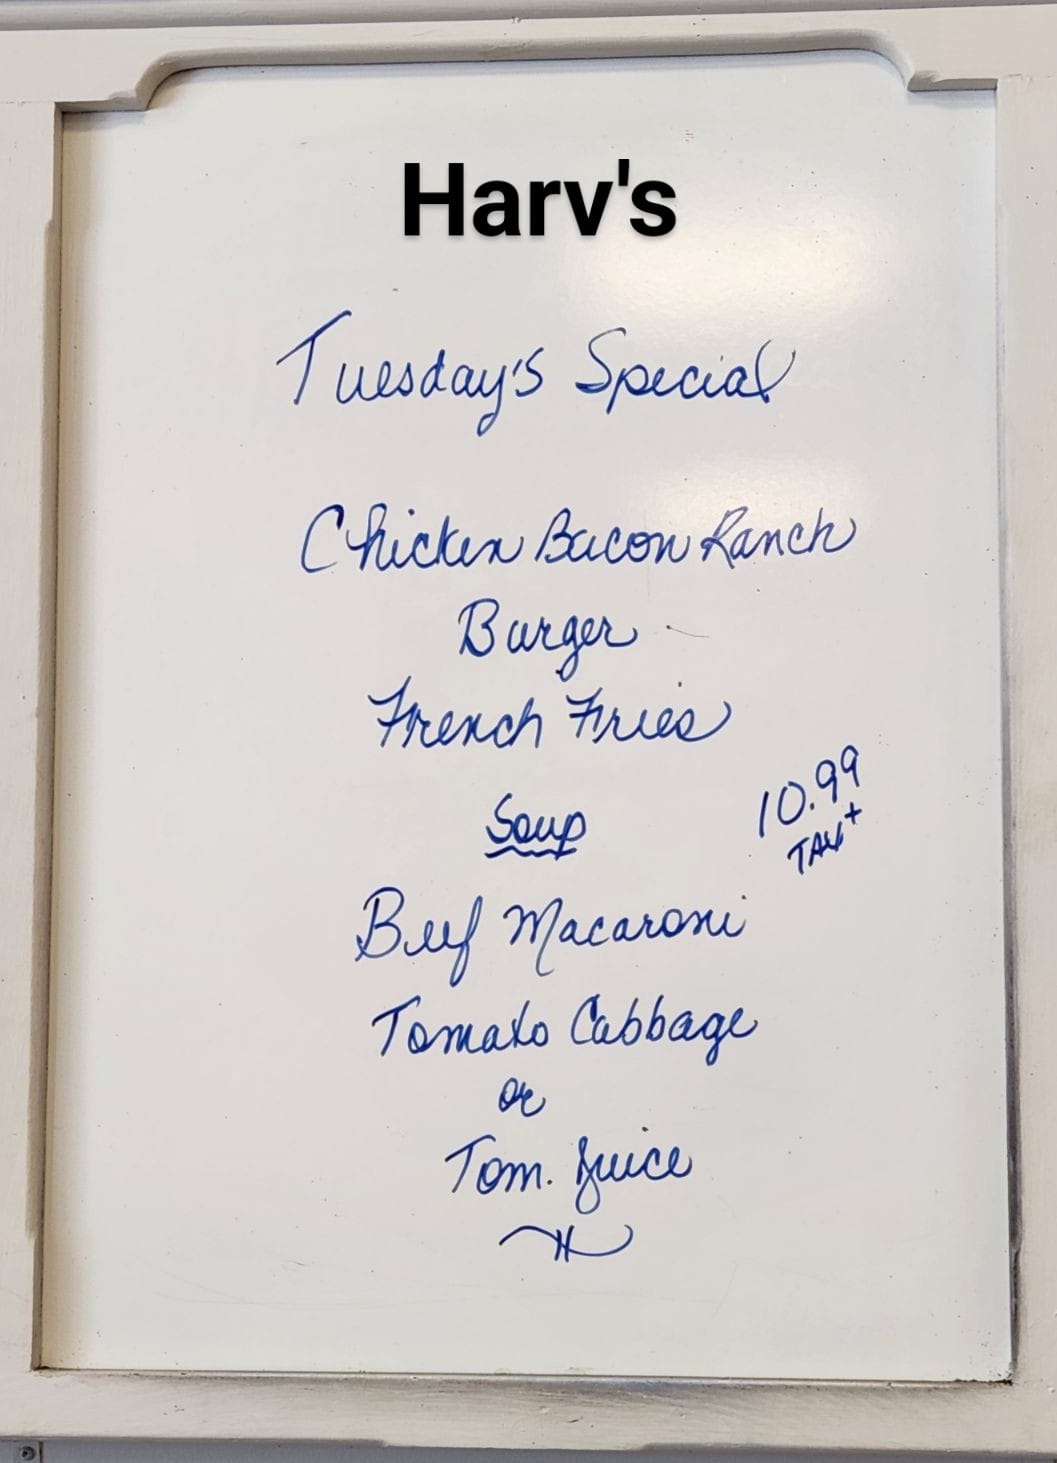 Harv's
Tuesday's Special
Chicken Bacon Ranch
Burger
French Fries
Soup
10.99
TAX+
Beef Macaroni
Tomato Cabbage
or
Tom. Juice